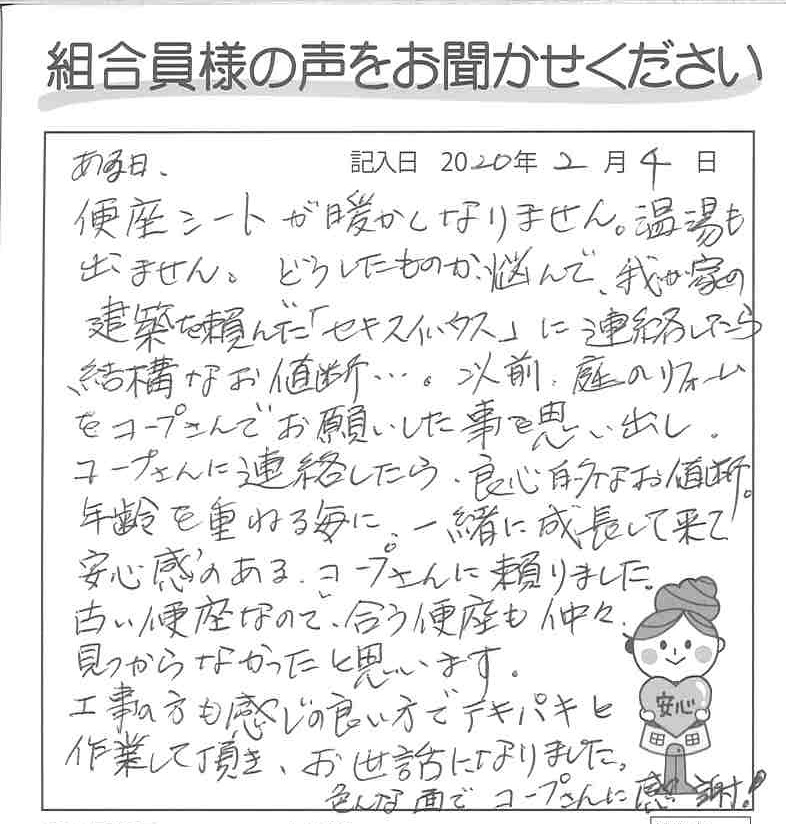 組合員様の声をお聞かせください
記入日 2020年 2 月 4 日
ある日、
便座シートが暖かくなりません。温湯も
出ません。どうしたものか、悩んで、我が家の
建築を頼んだ「セキスイハウス」に連絡したら
結構なお値断…。以前、庭のリフォーム
をコープさんでお願いした事を思い出し、
コープさんに連絡したら、良心的なお値断。
年齢を重ねる毎に、一緒に成長して来て
安心感のある、コープさんに頼りました。
古い便座なので、合う便座も仲々、
見つからなかったと思います。
工事の方も感じの良い方でテキパキと
作業して頂き、お世話になりました。
色んな面でコープさんに感謝!
安心